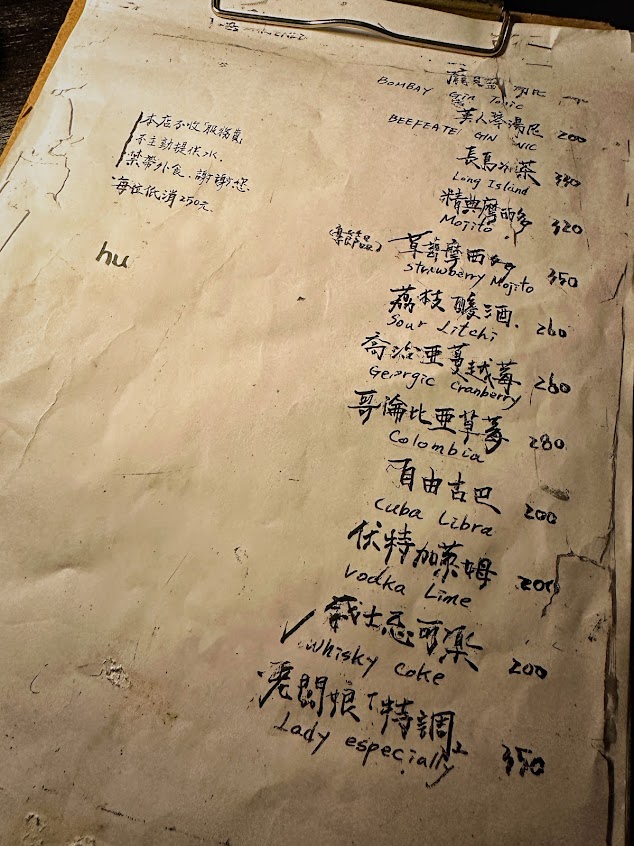 BOMBAY Gin Tonic
BEEFEATE GIN NIC
200
長島冰茶
Long Island
350
經典摩西多
Mojito
320
(季節品) 草莓摩西多
Strawberry Mojito
350
荔枝酸酒
Sour Litchi
260
喬治亞蔓越莓
Georgic Cranberry
260
哥倫比亞草莓
Colombia
280
自由古巴
Cuba Libra
200
伏特加萊姆
Vodka Lime
200
威士忌可樂
Whisky Coke
200
老闆娘「特調」
Lady especially
350
本店不收「服務費」
不主動提供水,
禁帶外食、謝謝您
每位低消250元.
hu